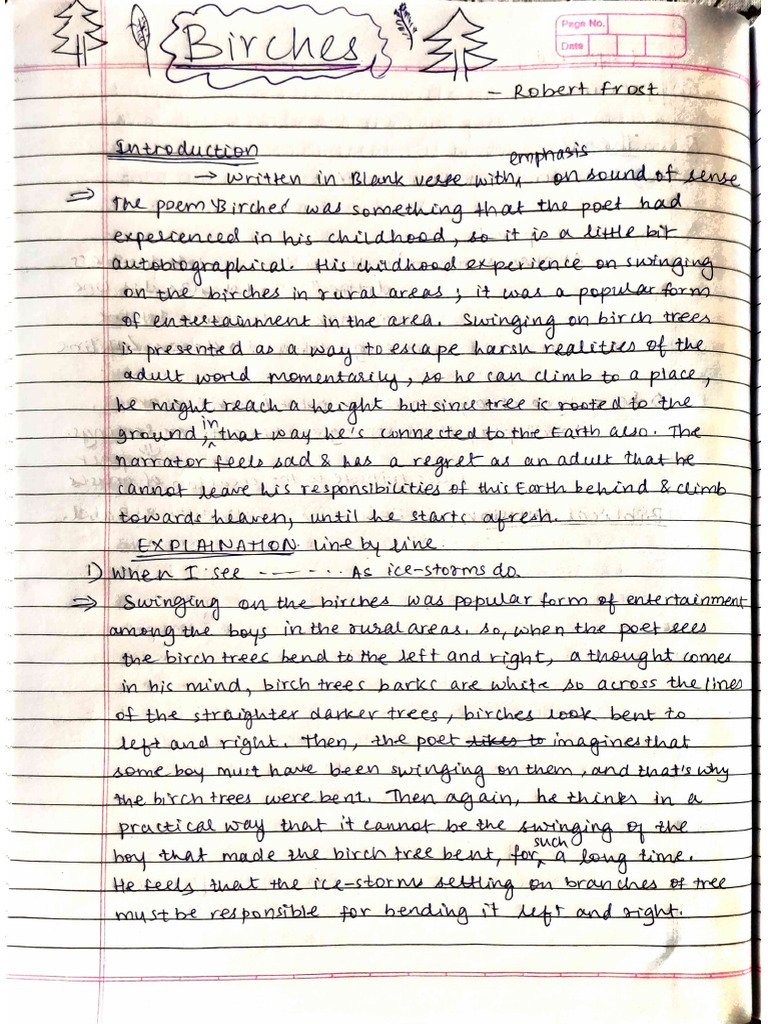 Birches
Page No.
Date
- Robert frost
Introduction
→ written in Blank verse with emphasis on sound of sense
⇒ The poem 'Birches' was something that the poet had
experienced in his childhood, so it is a little bit
autobiographical. His childhood experience on swinging
on the birches in rural areas; it was a popular form
of entertainment in the area. Swinging on birch trees
is presented as a way to escape harsh realities of the
adult world momentarily, so he can climb to a place,
he might reach a height but since tree is rooted to the
ground, in that way he's connected to the Earth also. The
narrator feels sad & has a regret as an adult that he
cannot leave his responsibilities of this Earth behind & climb
towards heaven, until he starts afresh.
EXPLAINATION line by line
1) When I see ------... As ice-storms do.
⇒ Swinging on the birches was popular form of entertainment
among the boys in the rural areas. so, when the poet sees
the birch trees bend to the left and right, a thought comes
in his mind, birch trees barks are white so across the lines
of the straighter darker trees, birches look bent to
left and right. Then, the poet likes to imagines that
some boy must have been swinging on them, and that's why
the birch trees were bent. Then again, he thinks in a
practical way that it cannot be the swinging of the
boy that made the birch tree bent, for such a long time.
He feels that the ice-storms settling on branches of tree
must be responsible for bending it left and right.